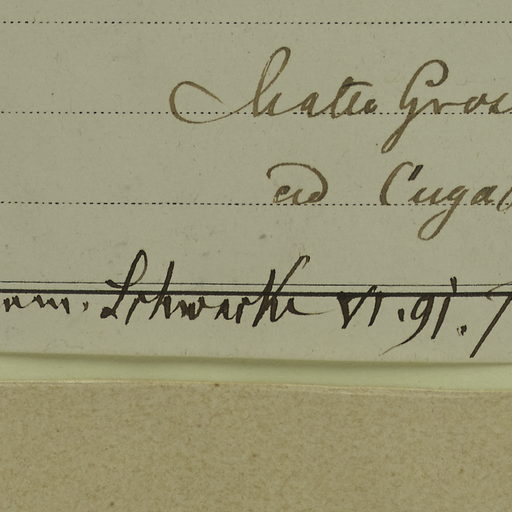 Matto Gros
ad Cuya
am. Schwacke VI. 91.